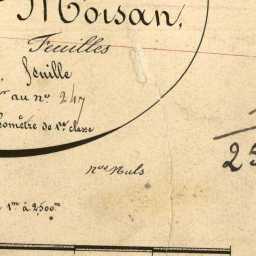 Moisan,
Feuilles
feuille
au no 247
omètre de 1re classe
25
nos Nuls
1m à 2,500m